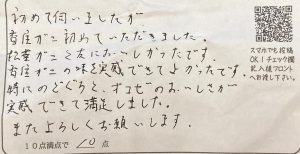 初めて伺いましたが
香住ガニ初めていただきました。
松葉ガニと友においしかったです。
香住ガニの味を実感できてよかったです。
特にのどぐろと、オコゼのおいしさが
実感できて満足しました。
またよろしくお願いします。
10点満点で 10 点
スマホでも投稿
OK！チェック欄
記入後フロント
へお渡し下さい。